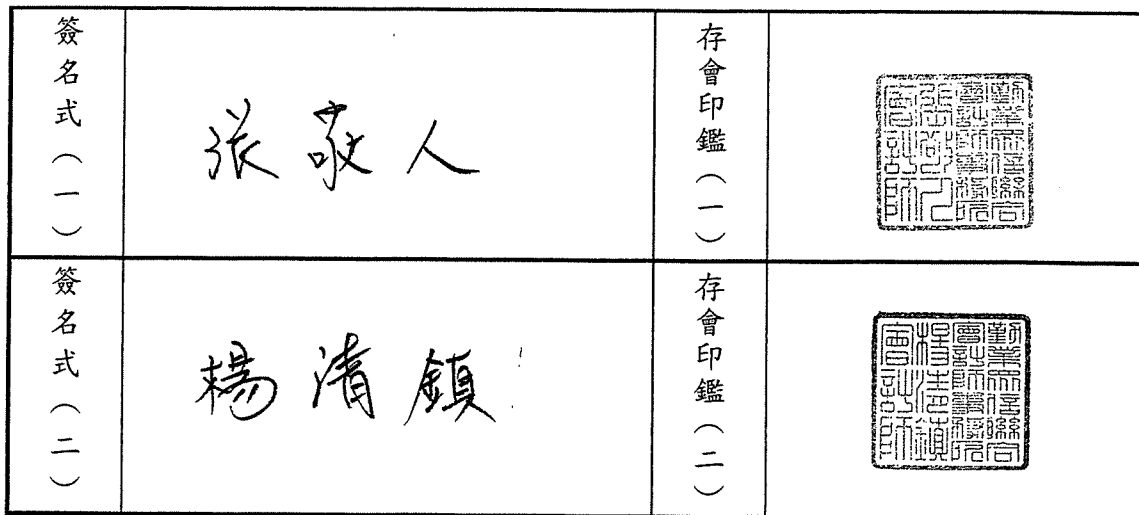 簽名式（一）
張敬人
存會印鑑（一）
勤業眾信聯合
會計師事務所
張敬人
會計師
簽名式（二）
楊清鎮
存會印鑑（二）
勤業眾信聯合
會計師事務所
楊清鎮
會計師